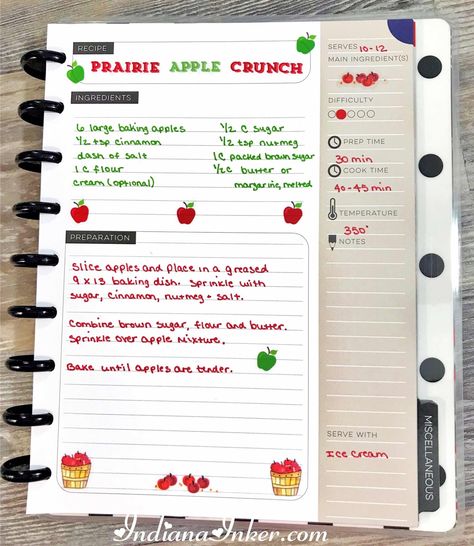 RECIPE
PRAIRIE APPLE CRUNCH
INGREDIENTS
6 large baking apples
1/2 tsp cinnamon
dash of salt
1 C flour
cream (optional)
1/2 C sugar
1/2 tsp nutmeg
1C packed brown sugar
1/2C butter or
margarine, melted
PREPARATION
Slice apples and place in a greased
9 x 13 baking dish. Sprinkle with
sugar, cinnamon, nutmeg + salt.
Combine brown sugar, flour and butter.
Sprinkle over apple mixture.
Bake until apples are tender.
SERVES 10-12
MAIN INGREDIENT(S)
DIFFICULTY
PREP TIME
30 min
COOK TIME
40-45 min
TEMPERATURE
350°
NOTES
SERVE WITH
Ice Cream
MISCELLANEOUS
IndianaInker.com